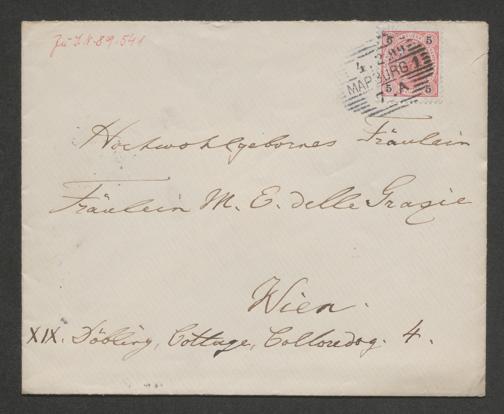 Zu I.N. 89.541
5 5
4. 2. 99
MARBURG 1
5 5
Hochwohlgebornes Fräulein
Fräulein M. E. delle Grazie
Wien.
XIX. Döbling, Cottage, Colloredog. 4.